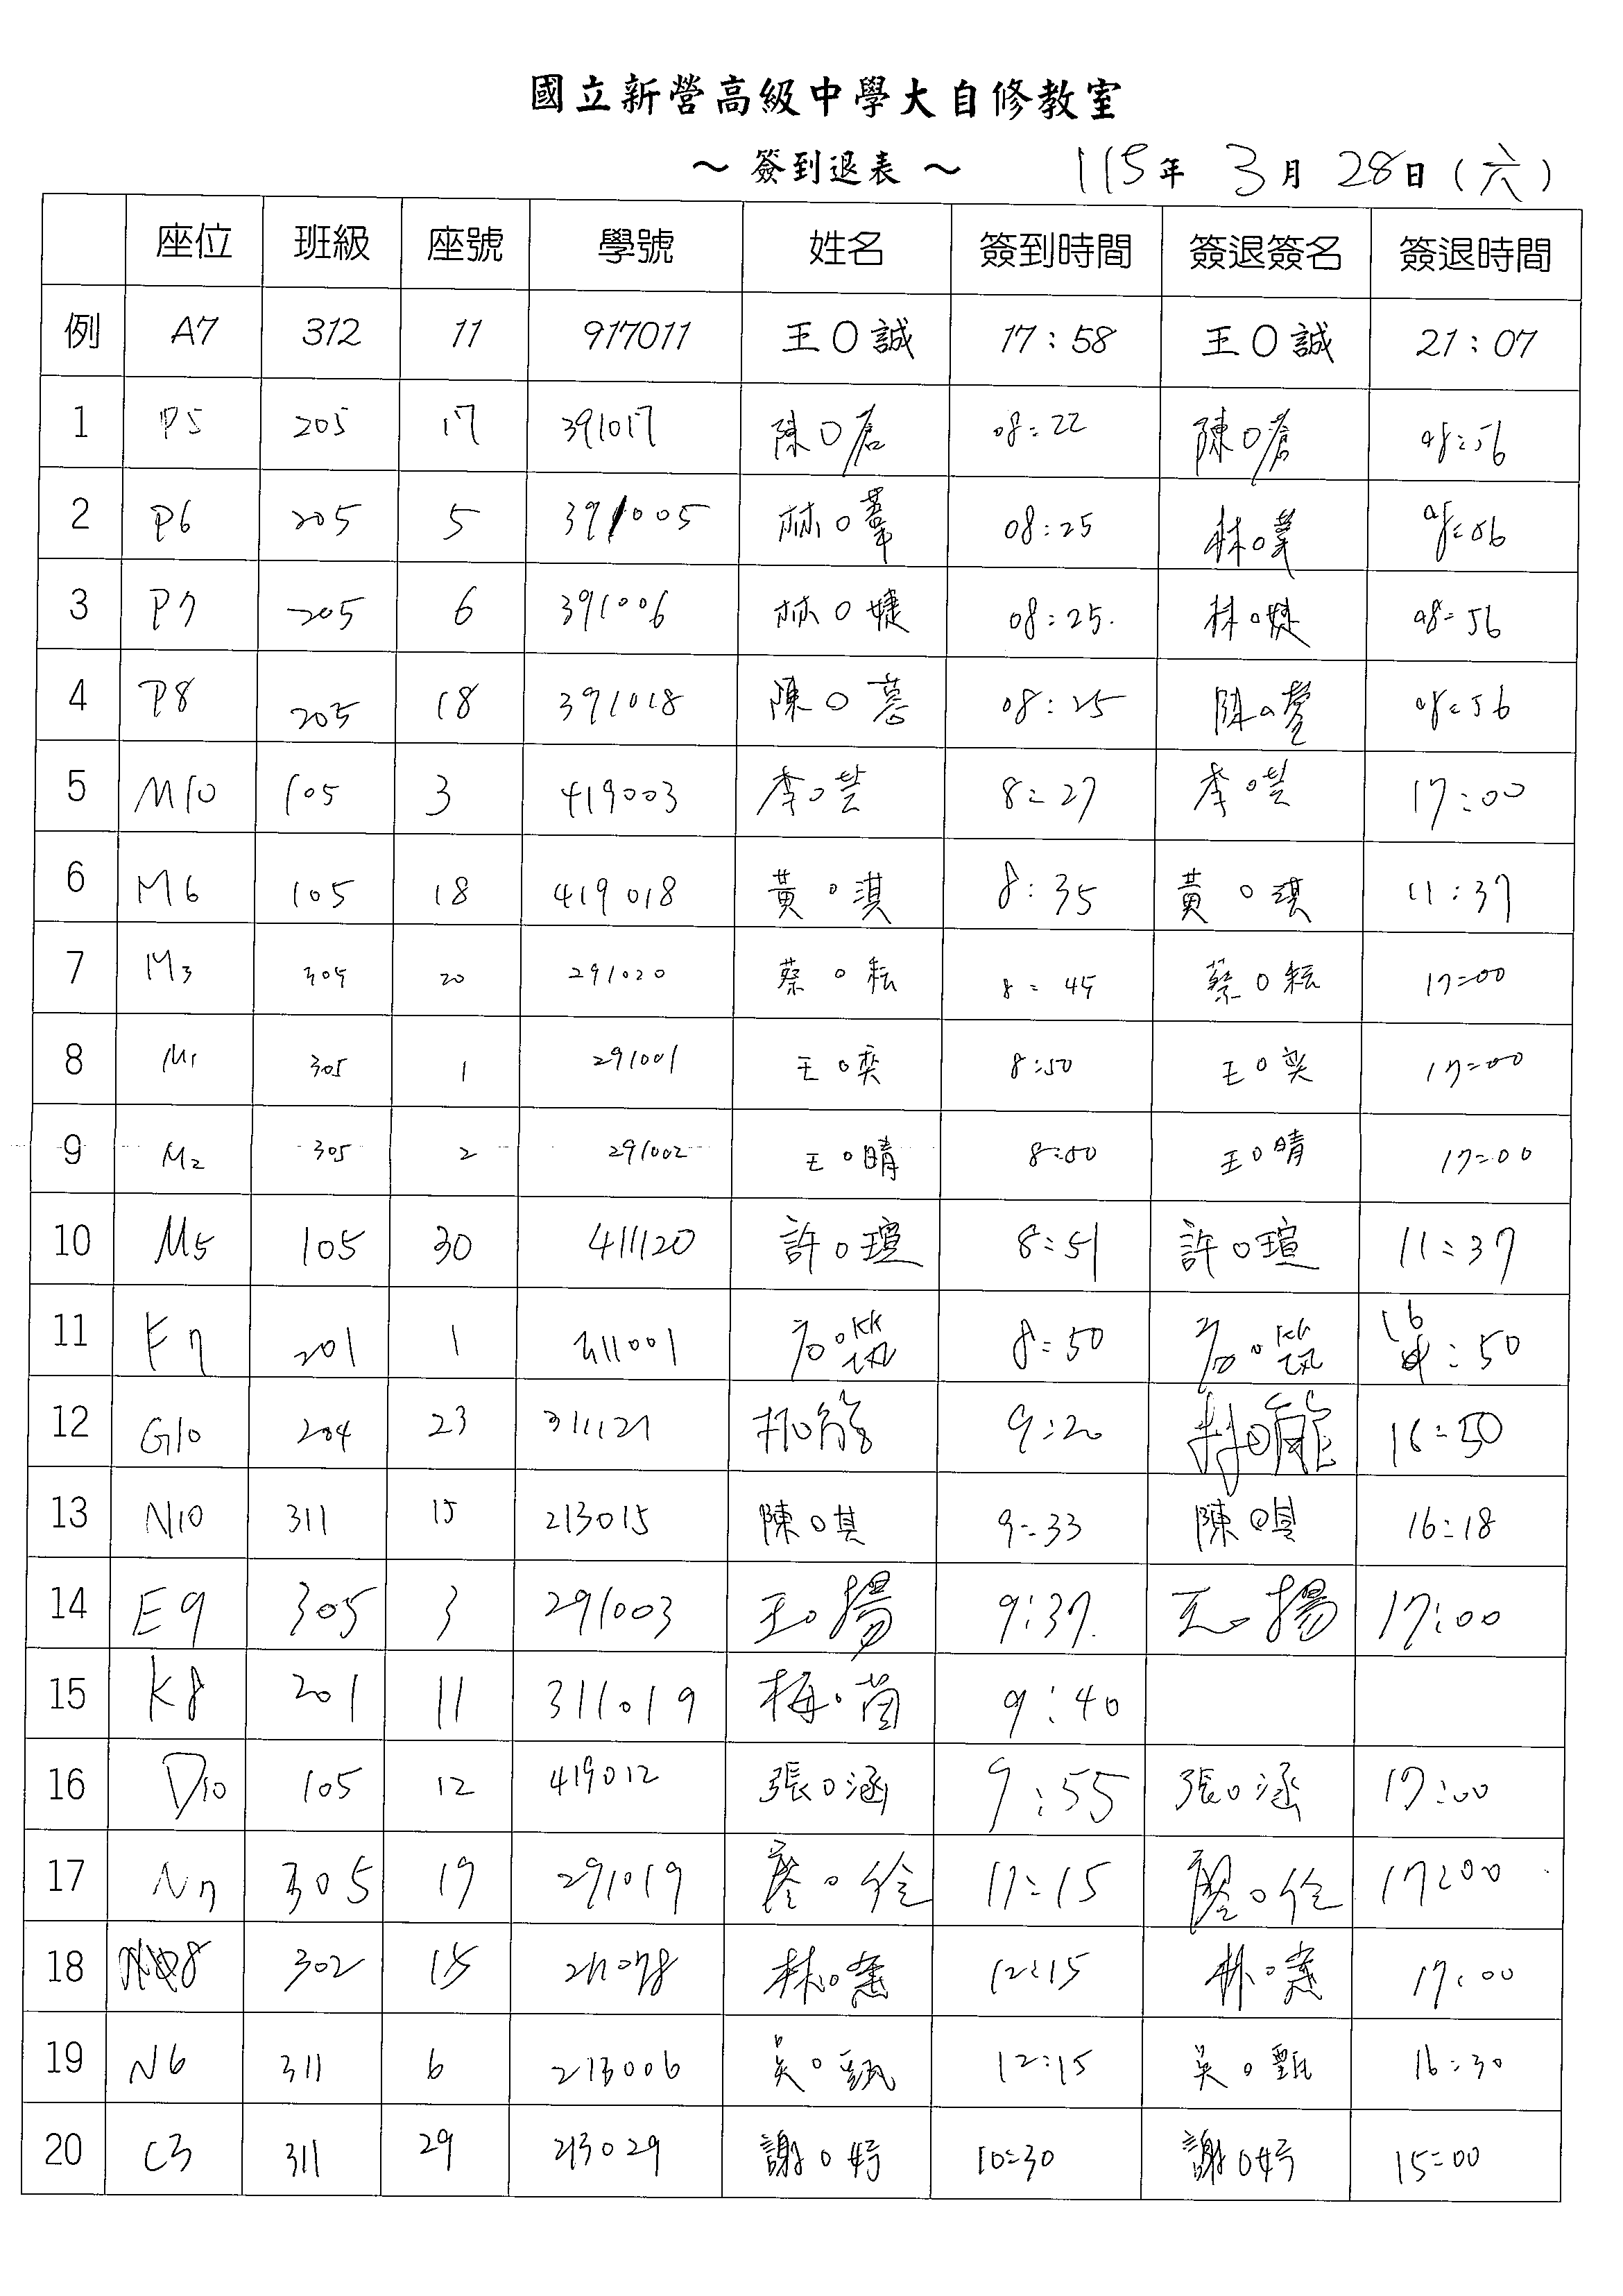 國立新營高級中學大自修教室
～ 簽到退表 ～ 115年 3月 28日(六)
座位 班級 座號 學號 姓名 簽到時間 簽退簽名 簽退時間
例 A7 312 11 917011 王O誠 17:58 王O誠 21:07
1 P5 205 17 391017 陳O 08:22 陳O 08:56
2 P6 205 5 391005 林O 08:25 林O
3 P7 205 6 391006 林O婕 08:25 林O婕 08:56
4 P8 205 18 391018 陳O 08:25 陳O 08:56
5 M10 105 3 419003 李O芸 8:27 李O芸 17:00
6 M6 105 18 419018 黃O淇 8:35 黃O淇 11:37
7 M3 305 20 291020 蔡O耘 8:45 蔡O耘 17:00
8 M1 305 1 291001 王O奕 8:50 王O奕 17:00
9 M2 305 2 291002 王O晴 8:50 王O晴 17:00
10 M5 105 30 411120 許O瑄 8:51 許O瑄 11:37
11 F7 201 1 311001 8:50 16:50
12 G10 204 23 311121 林O 9:20 林O 16:50
13 N10 311 15 213015 陳O其 9:33 陳O 16:18
14 E9 305 3 291003 王O揚 9:37 王O揚 17:00
15 K8 201 11 311019 梅O茵 9:40
16 D10 105 12 419012 張O涵 9:55 張O涵 17:00
17 N7 305 19 291019 廖O 11:15 廖O 17:00
18 302 15 林O 12:15 林O 17:00
19 N6 311 6 213006 吳O甄 12:15 吳O甄 16:30
20 C3 311 29 213029 謝O妤 10:30 謝O妤 15:00